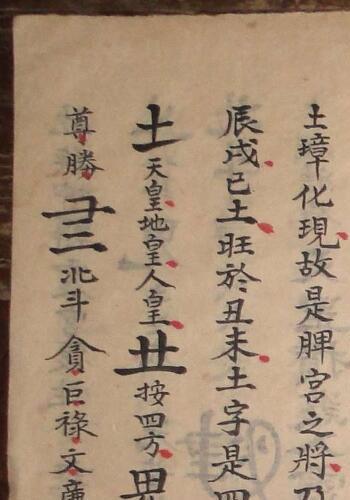 土璋化現故是脾宮之將乃
辰戌巳土旺於丑未土字是四
土天皇地皇人皇丑按四方
尊勝北斗貪巨祿文廉